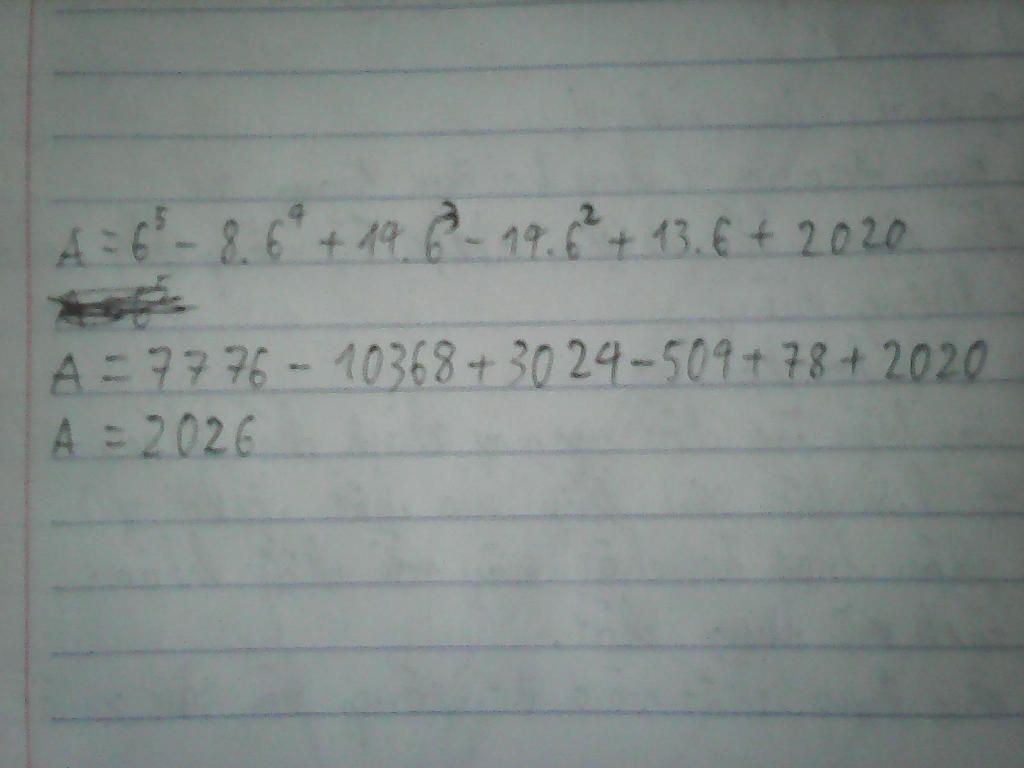 A = 6⁵ - 8.6⁴ + 14.6³ - 14.6² + 13.6 + 2020
A = 7776 - 10368 + 3024 - 504 + 78 + 2020
A = 2026